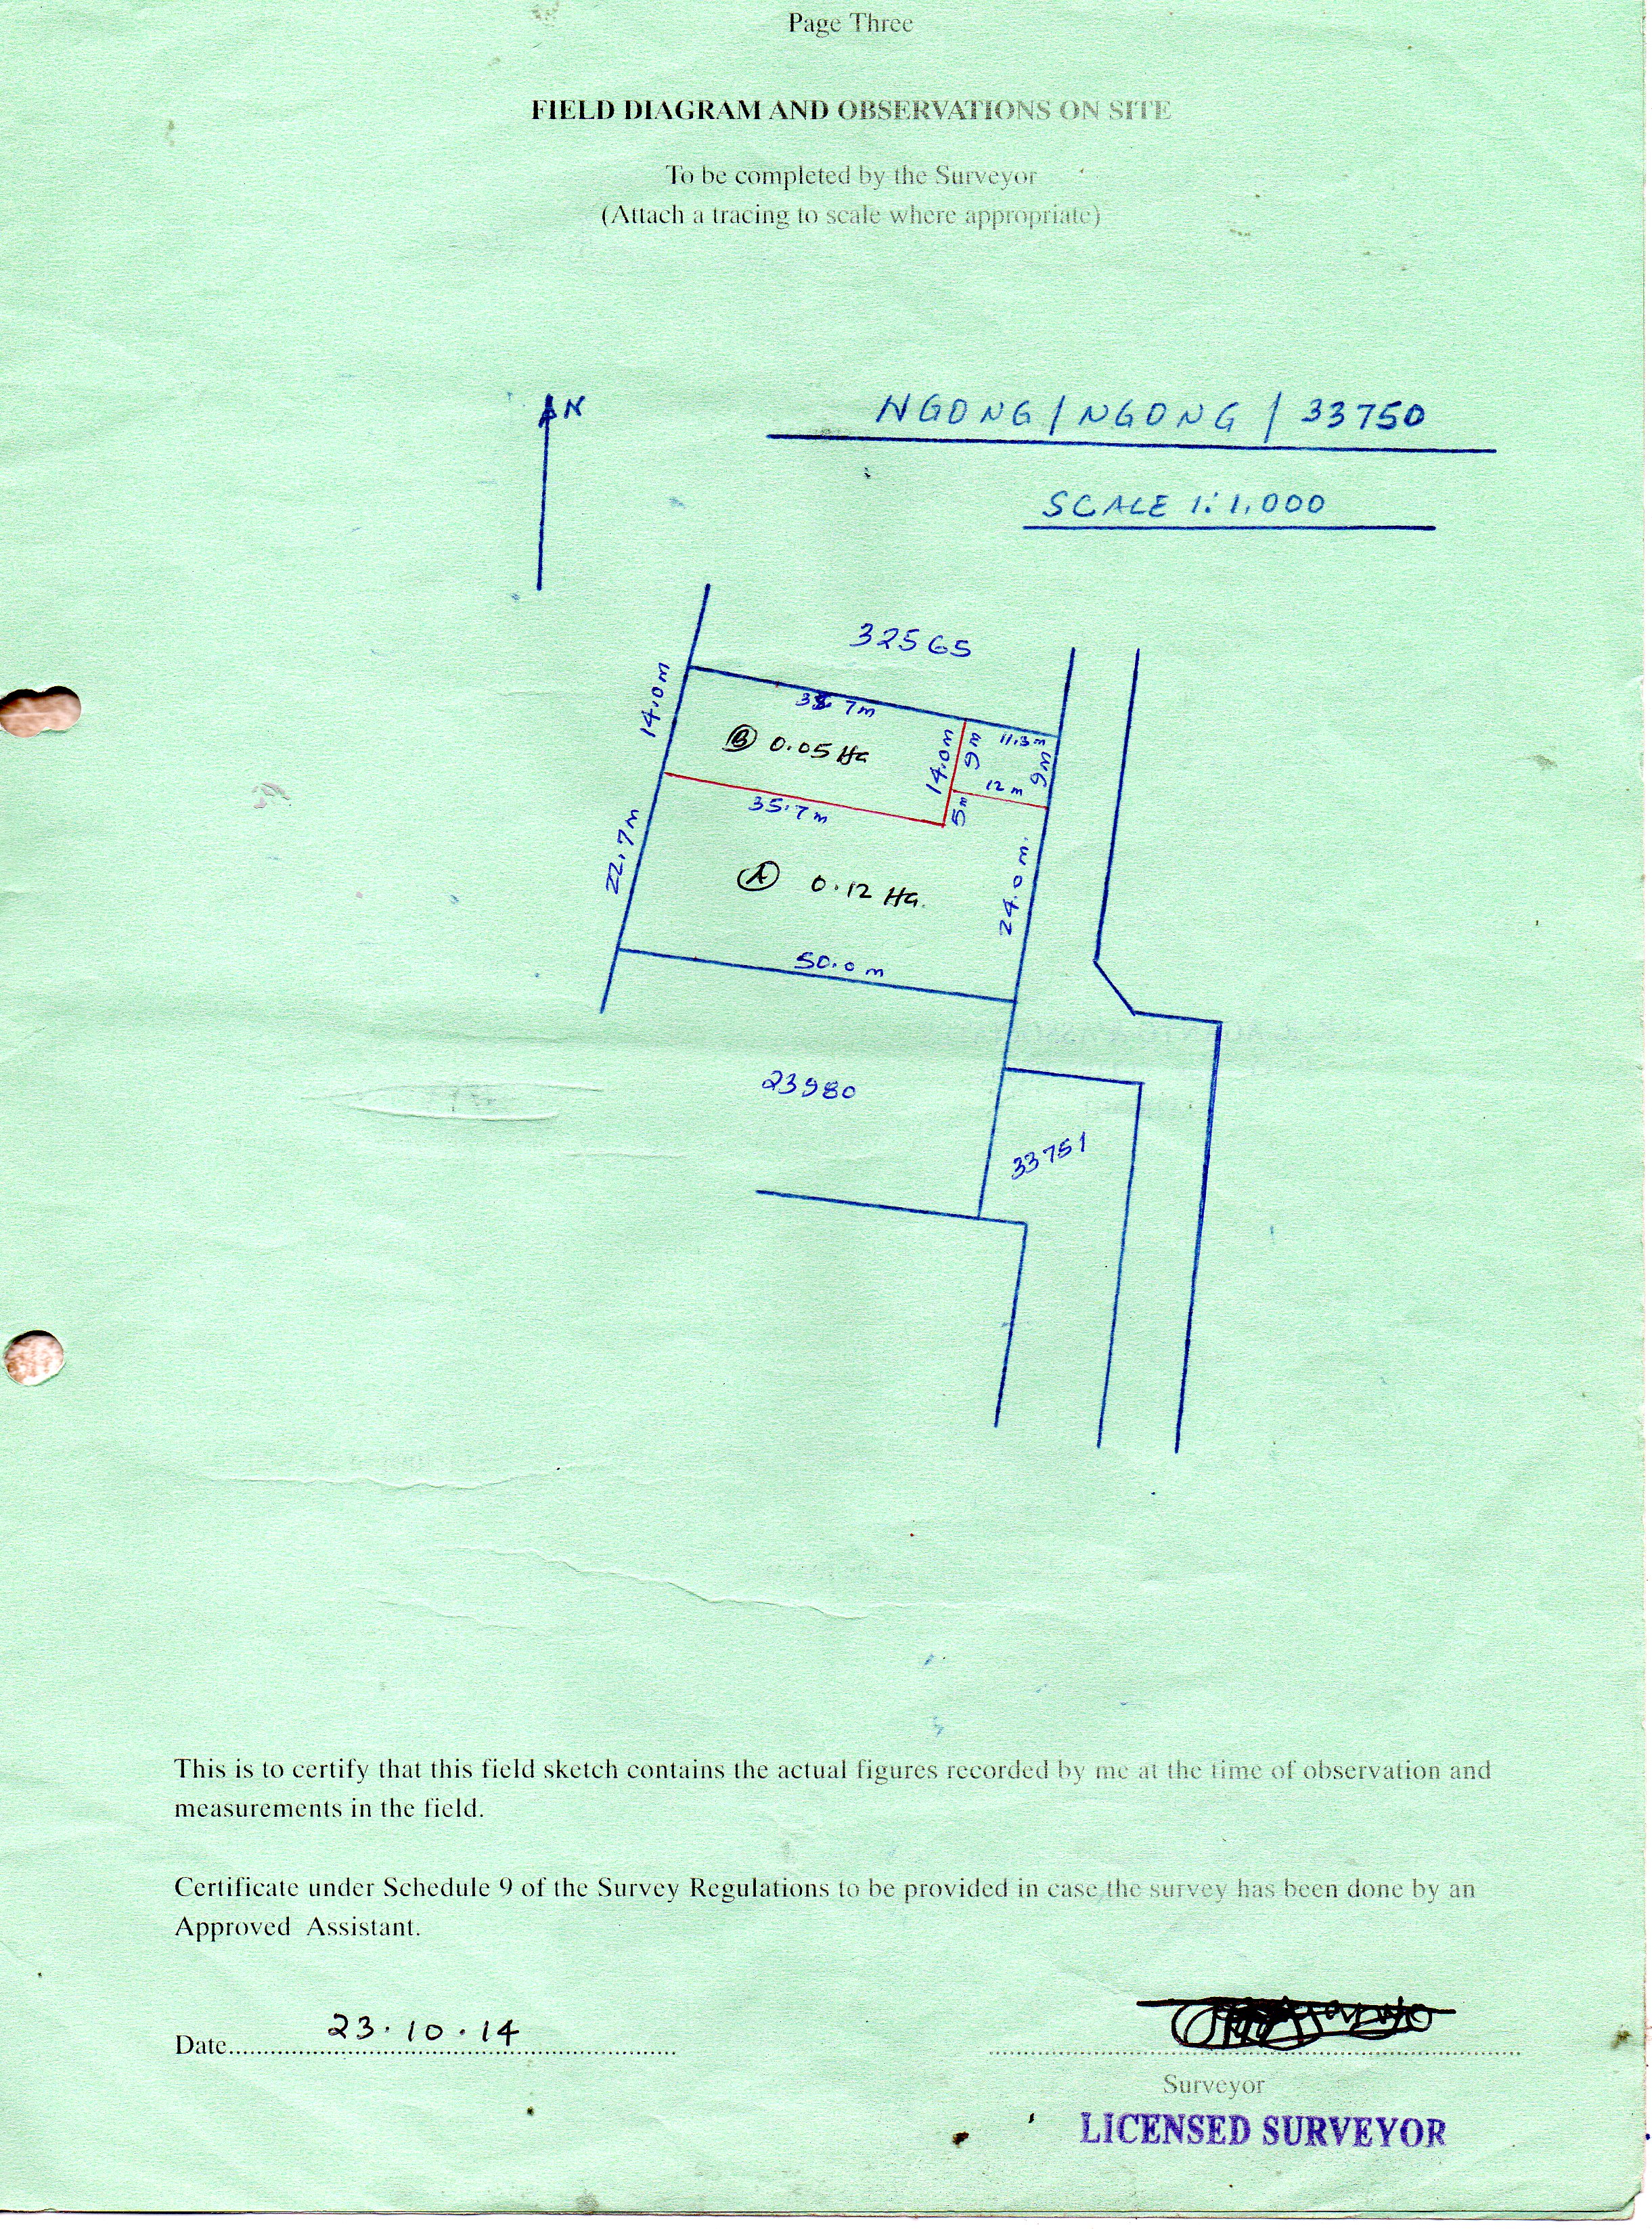 Page Three
FIELD DIAGRAM AND OBSERVATIONS ON SITE
To be completed by the Surveyor
(Attach a tracing to scale where appropriate)
N
NGONG / NGONG / 33750
SCALE 1:1,000
32565
14.0m
7m
B 0.05 Ha
14.0m
9m
11.3m
9m
12 m
5m
35.7m
22.7m
A 0.12 Ha.
24.0 m.
50.0 m
23980
33751
This is to certify that this field sketch contains the actual figures recorded by me at the time of observation and
measurements in the field.
Certificate under Schedule 9 of the Survey Regulations to be provided in case the survey has been done by an
Approved Assistant.
Date 23.10.14
Surveyor
LICENSED SURVEYOR